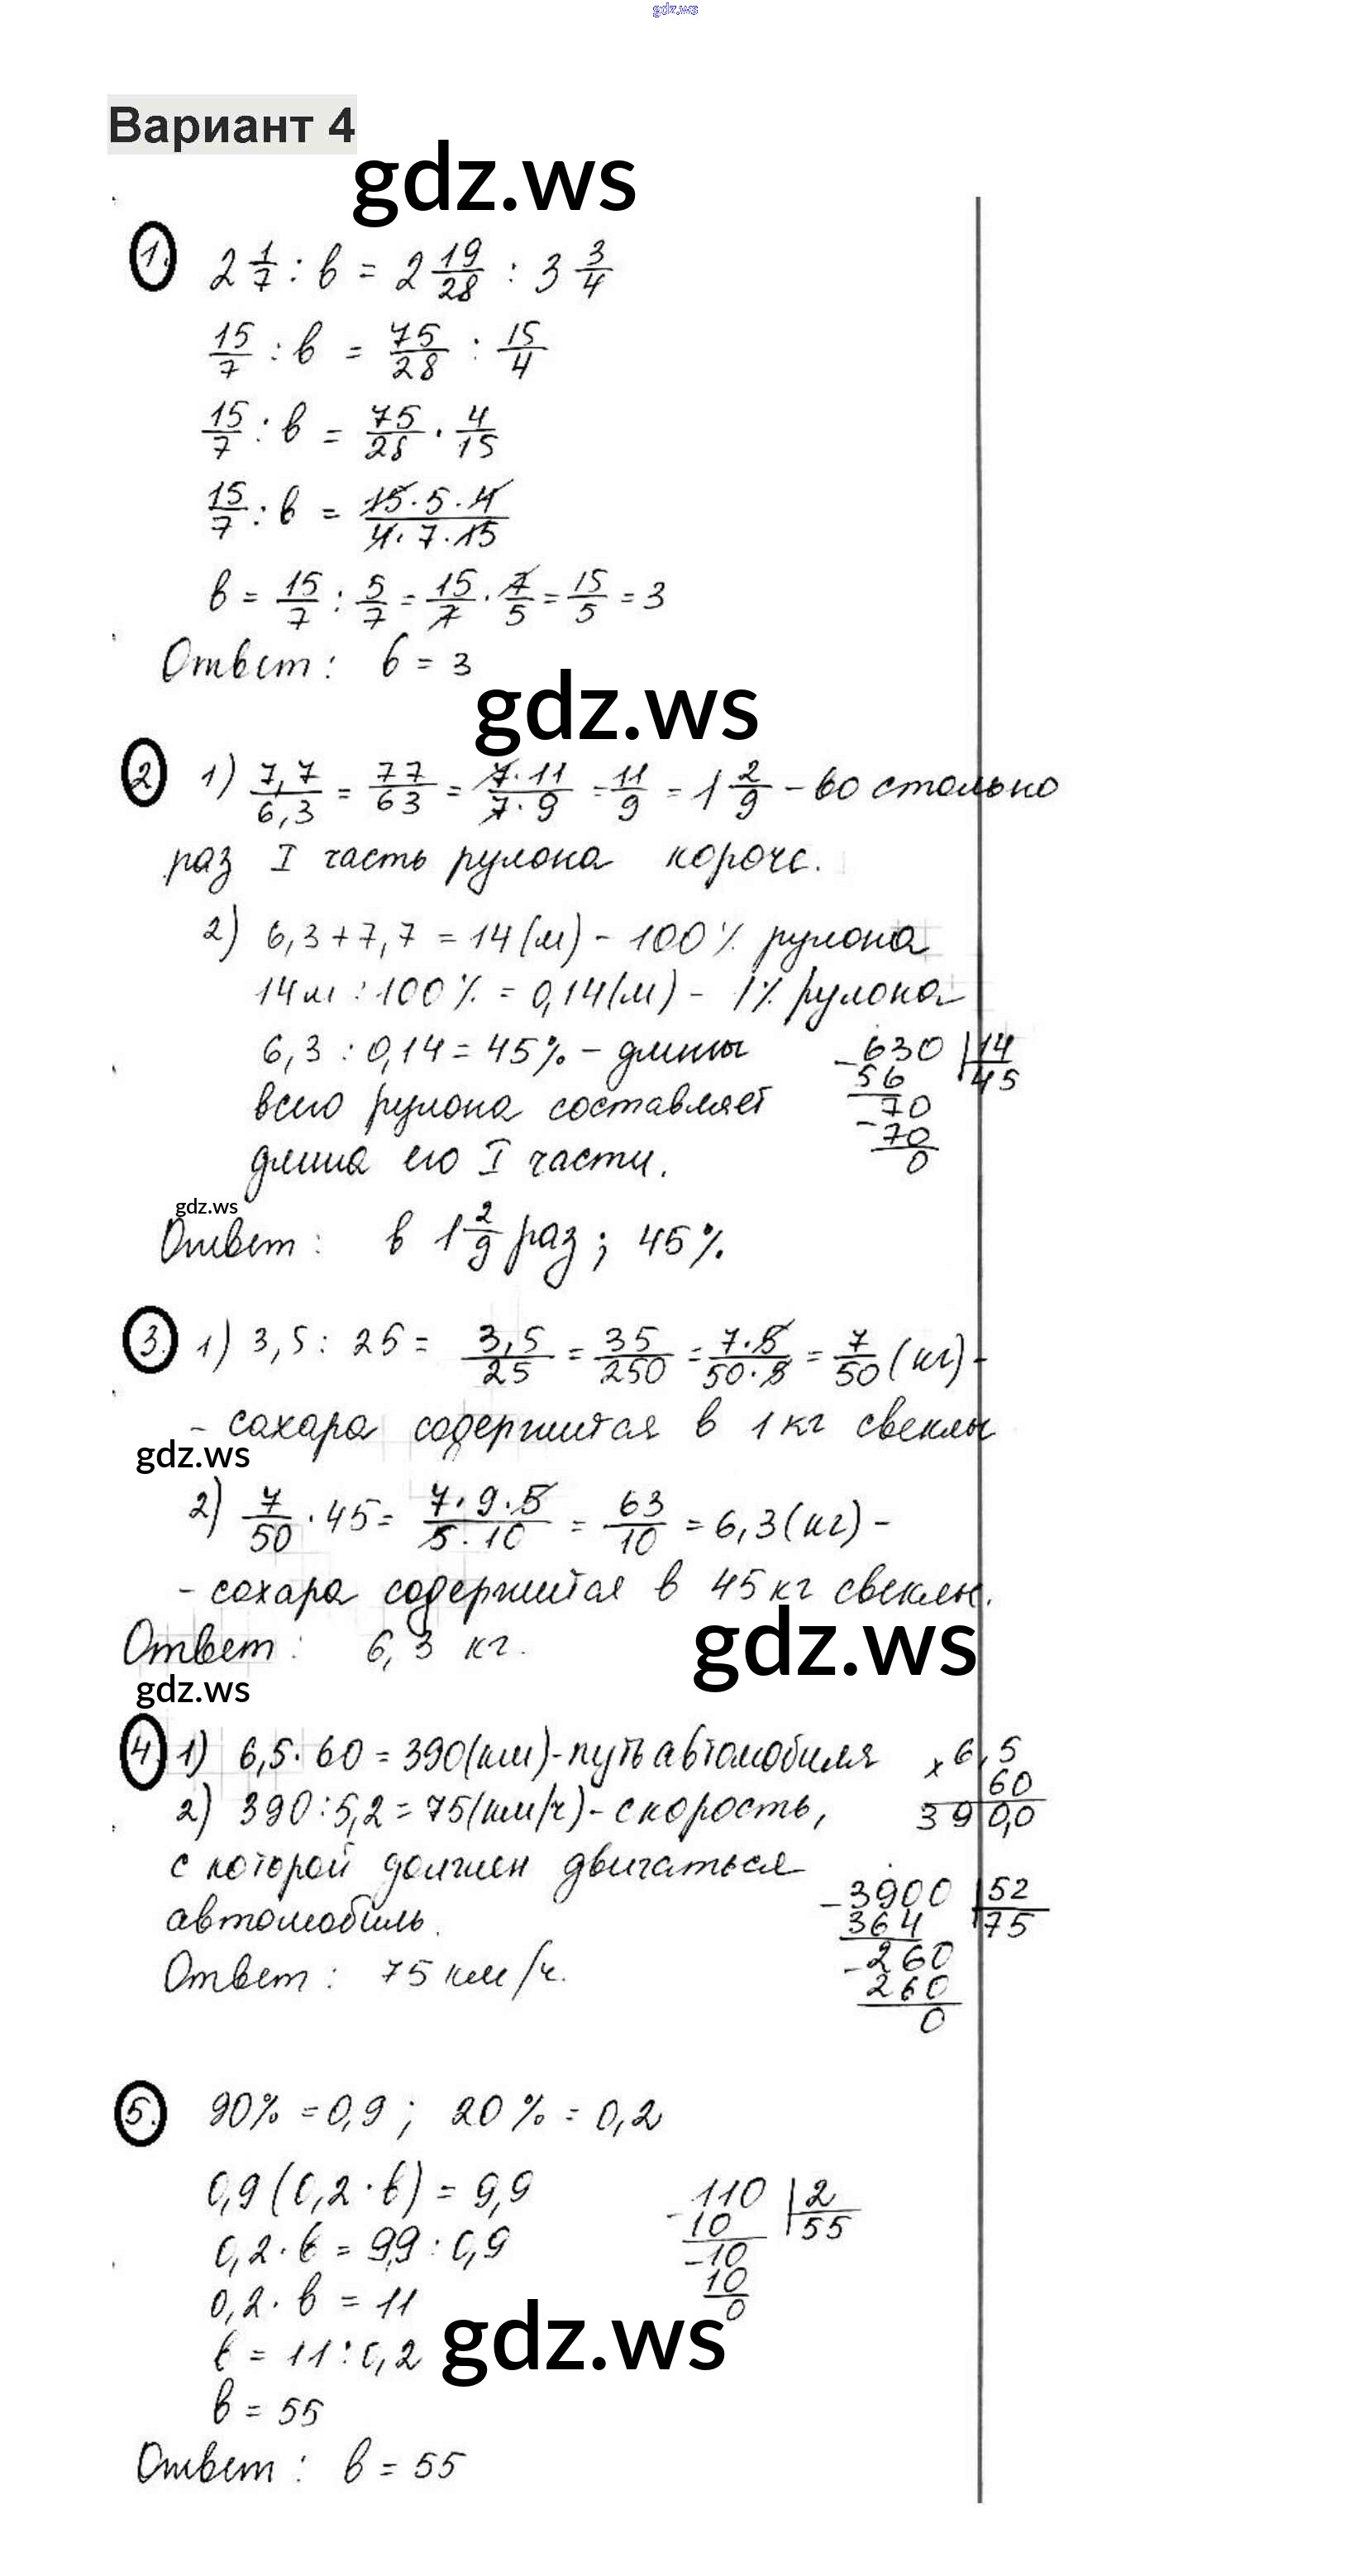 gdz.ws
Вариант 4
gdz.ws
1. 2 1/7 : в = 2 19/28 : 3 3/4
15/7 : в = 75/28 : 15/4
15/7 : в = 75/28 · 4/15
15/7 : в = 15·5·4/4·7·15
в = 15/7 : 5/7 = 15/7 · 7/5 = 15/5 = 3
Ответ: в = 3
gdz.ws
2 1) 7,7/6,3 = 77/63 = 7·11/7·9 = 11/9 = 1 2/9 – во столько
раз I часть рулона короче.
2) 6,3+7,7 = 14(м) – 100% рулона
14м : 100% = 0,14(м) – 1% рулона
6,3 : 0,14 = 45% – длины
630 14
– 56 45
всего рулона составляет
70
– 70
0
длина его I части.
gdz.ws
Ответ: в 1 2/9 раз; 45%
3. 1) 3,5 : 25 = 3,5/25 = 35/250 = 7·5/50·5 = 7/50 (кг) –
– сахара содержится в 1 кг свеклы
gdz.ws
2) 7/50 · 45 = 7·9·5/5·10 = 63/10 = 6,3(кг) –
– сахара содержится в 45 кг свеклы.
gdz.ws
Ответ: 6,3 кг.
gdz.ws
4 1) 6,5 · 60 = 390(км) – путь автомобиля
× 6,5
60
390,0
2) 390 : 5,2 = 75(км/ч) – скорость,
с которой должен двигаться
автомобиль.
– 3900 52
364 75
– 260
260
0
Ответ: 75 км/ч.
5. 90% = 0,9; 20% = 0,2
0,9(0,2·в) = 9,9
0,2·в = 9,9 : 0,9
0,2·в = 11
– 110 2
10 55
– 10
10
0
gdz.ws
в = 11 : 0,2
в = 55
Ответ: в = 55